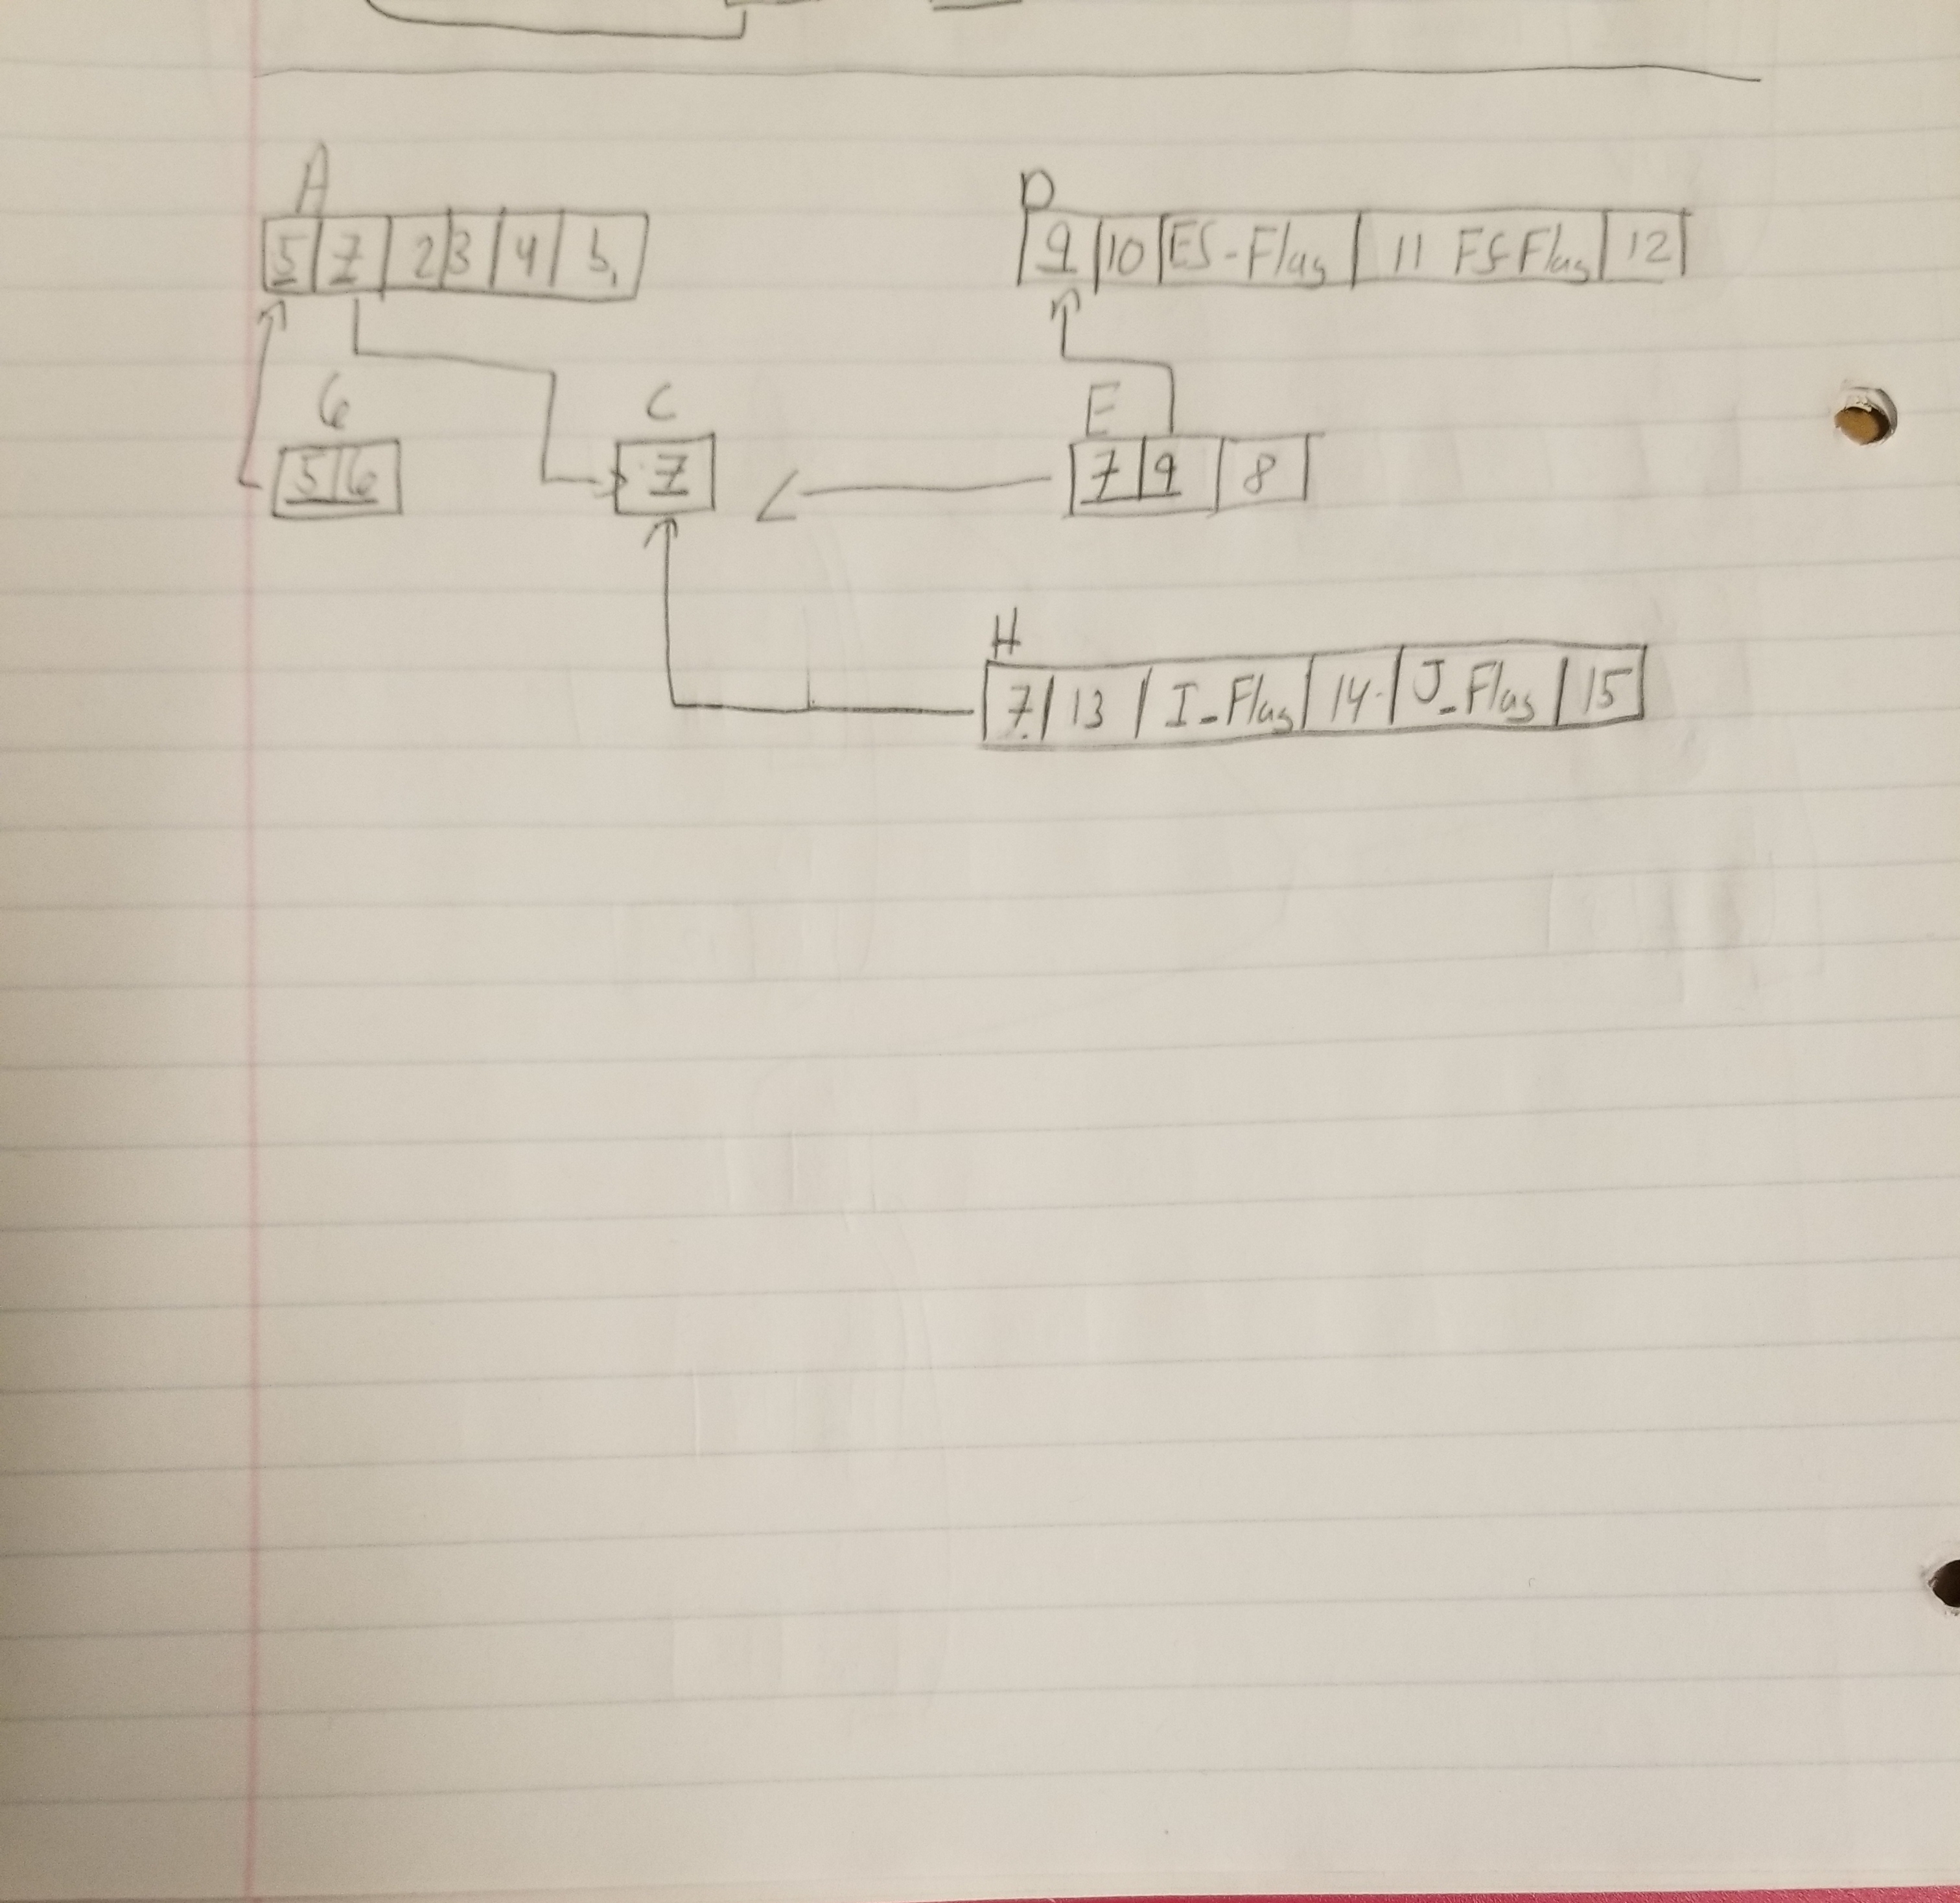 A D
5 7 2 3 4 5 9 10 ES-Flag 11 FS Flag 12
6 C E
5 6 7 7 9 8
H
7 13 I-Flag 14 J-Flag 15